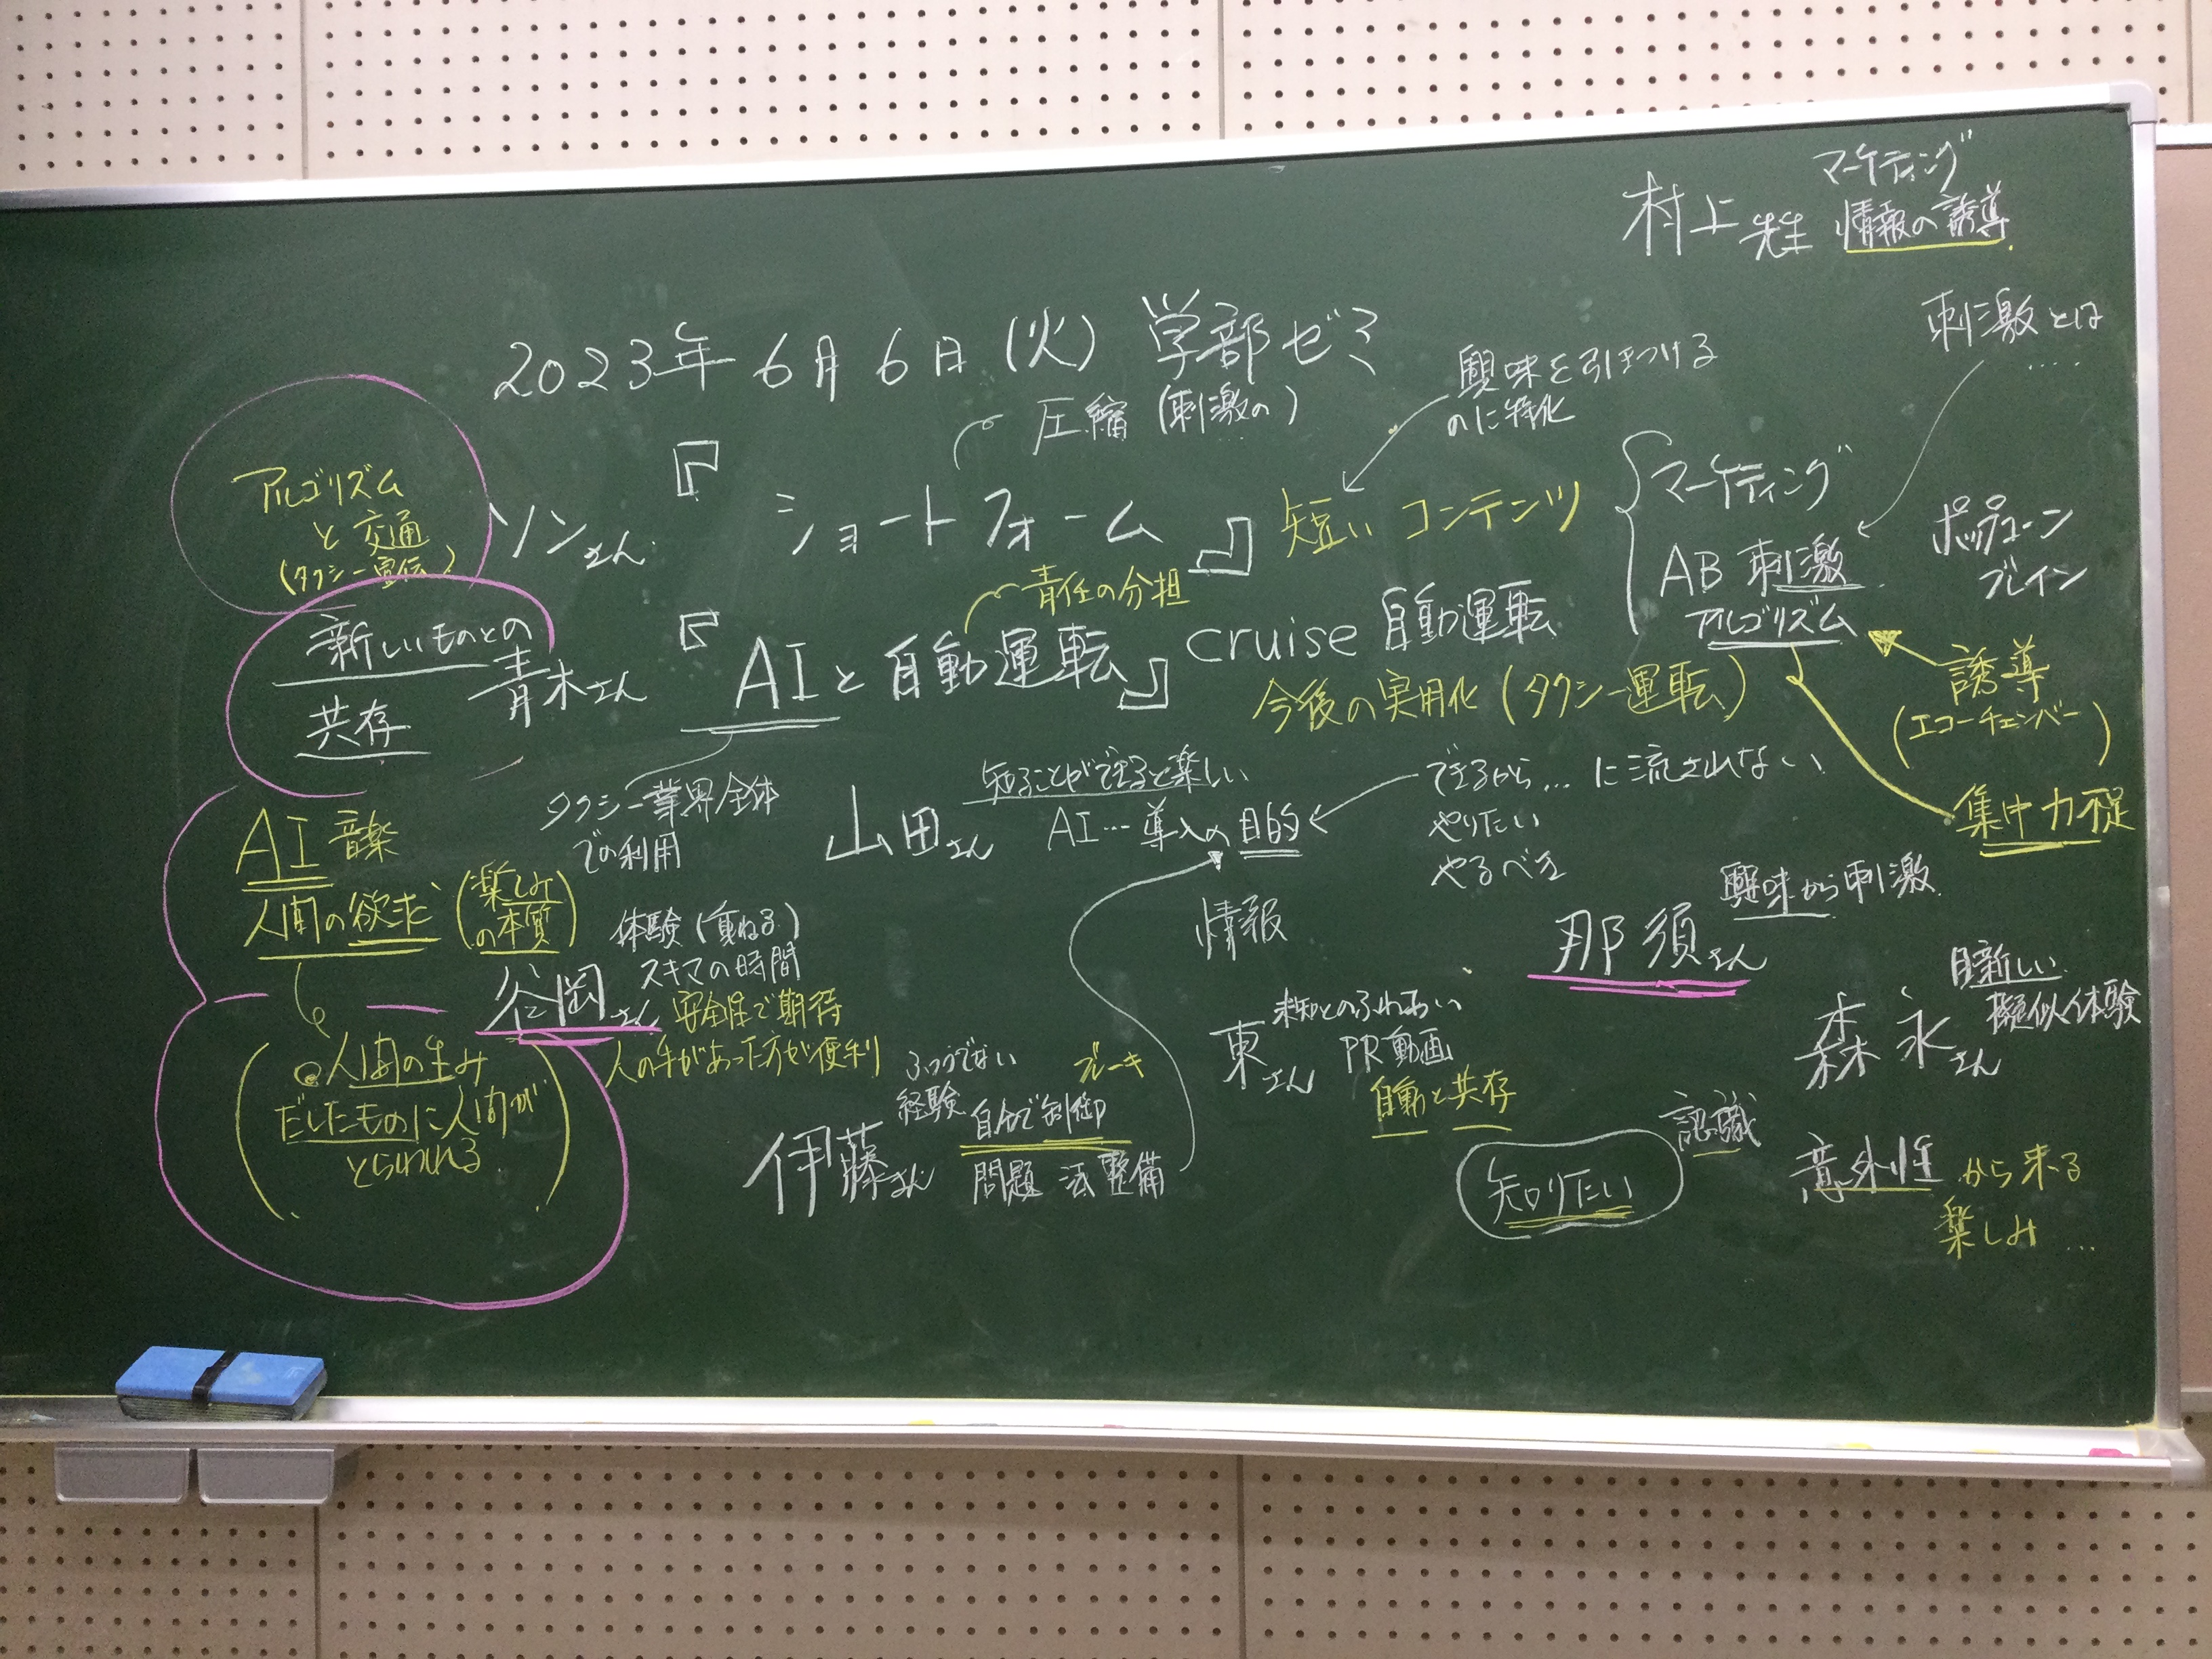 マーケティング
村上先生 情報の誘導
2023年6月6日(火) 学部ゼミ
刺激とは
....
圧縮(刺激の)
...
興味を引きつける
のに特化
アルゴリズム
と交通
(タクシー宣伝)
ソンさん
『ショートフォーム』
短いコンテンツ
マーケティング
AB 刺激
アルゴリズム
ポップコーン
ブレイン
責任の分担
新しいものとの
共存
青木さん
『AIと自動運転』
cruise 自動運転
今後の実用化(タクシー運転)
誘導
(エコーチェンバー)
集中力不足
タクシー業界全体
での利用
山田さん
知ることができると楽しい
AI…導入の目的
できるから…に流されない
やりたい
やるべき
情報
AI 音楽
人間の欲求
(楽しみ
の本質)
谷岡さん
体験(重ねる)
スキマの時間
安全性で期待
人の手があった方が便利
(人間の生み
だしたものに人間が
とらわれる)
伊藤さん
ふつうでない
経験
ブレーキ
自分で制御
問題 法整備
東さん
未知とのふれあい
PR動画
自動と共存
那須さん
興味から刺激
森永さん
目新しい
擬似体験
知りたい
認識
意外性から来る
楽しみ…